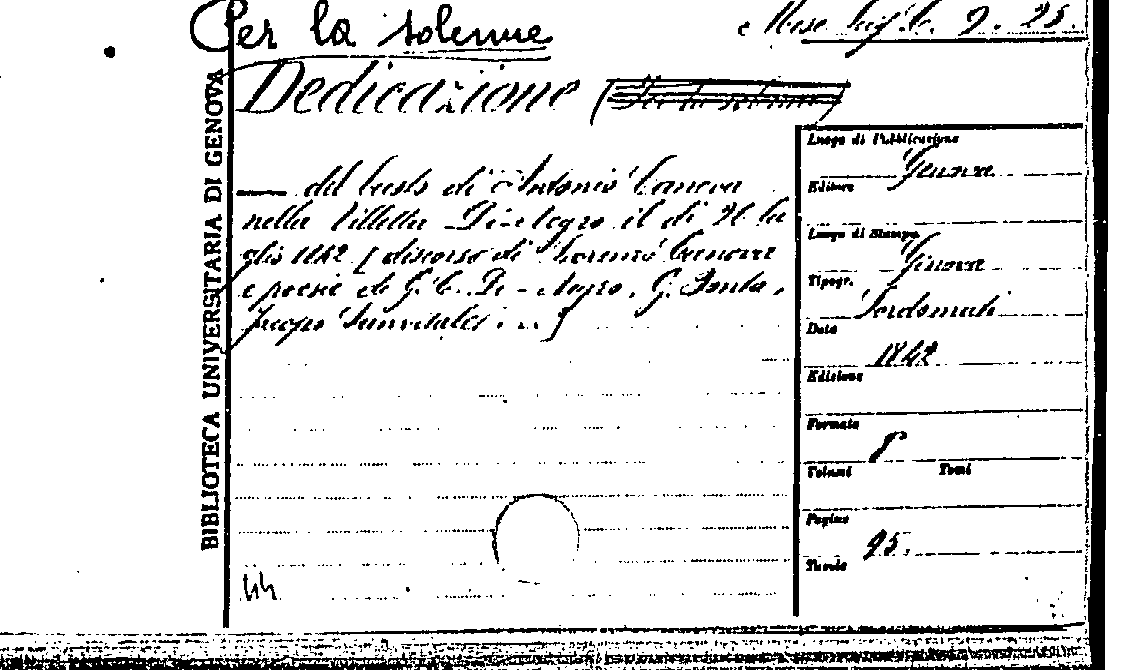 Per la solenne
Misc. Lig. C. 9. 25.
Dedicazione (Per la solenne)
— del busto di Antonio Canova
nella Villetta Di-Negro il di 21 lu
glio 1842 [discorso di Lorenzo Canova
e poesie di G. C. Di-Negro, G. Ponta,
Jacopo Sanvitale ...]
44
BIBLIOTECA UNIVERSITARIA DI GENOVA
Luogo di Pubblicazione
Genova
Editore
Luogo di Stampa
Genova
Tipogr.
Data
1842
Edizione
Formato
8°
Volumi Tomi
Pagine
95.
Tavole